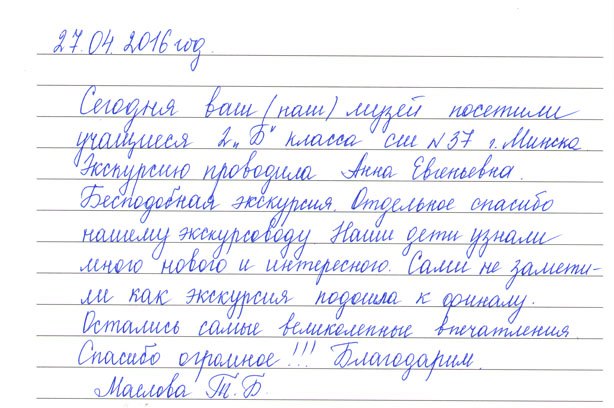 27.04.2016 год.
Сегодня ваш (наш) музей посетили
учащиеся 2 „Б" класса сш №37 г. Минска.
Экскурсию проводила Анна Евгеньевна.
Бесподобная экскурсия. Отдельное спасибо
нашему экскурсоводу. Наши дети узнали
много нового и интересного. Сами не замети-
ли как экскурсия подошла к финалу.
Остались самые великолепные впечатления.
Спасибо огромное!!! Благодарим.
Маслова Т.Б.